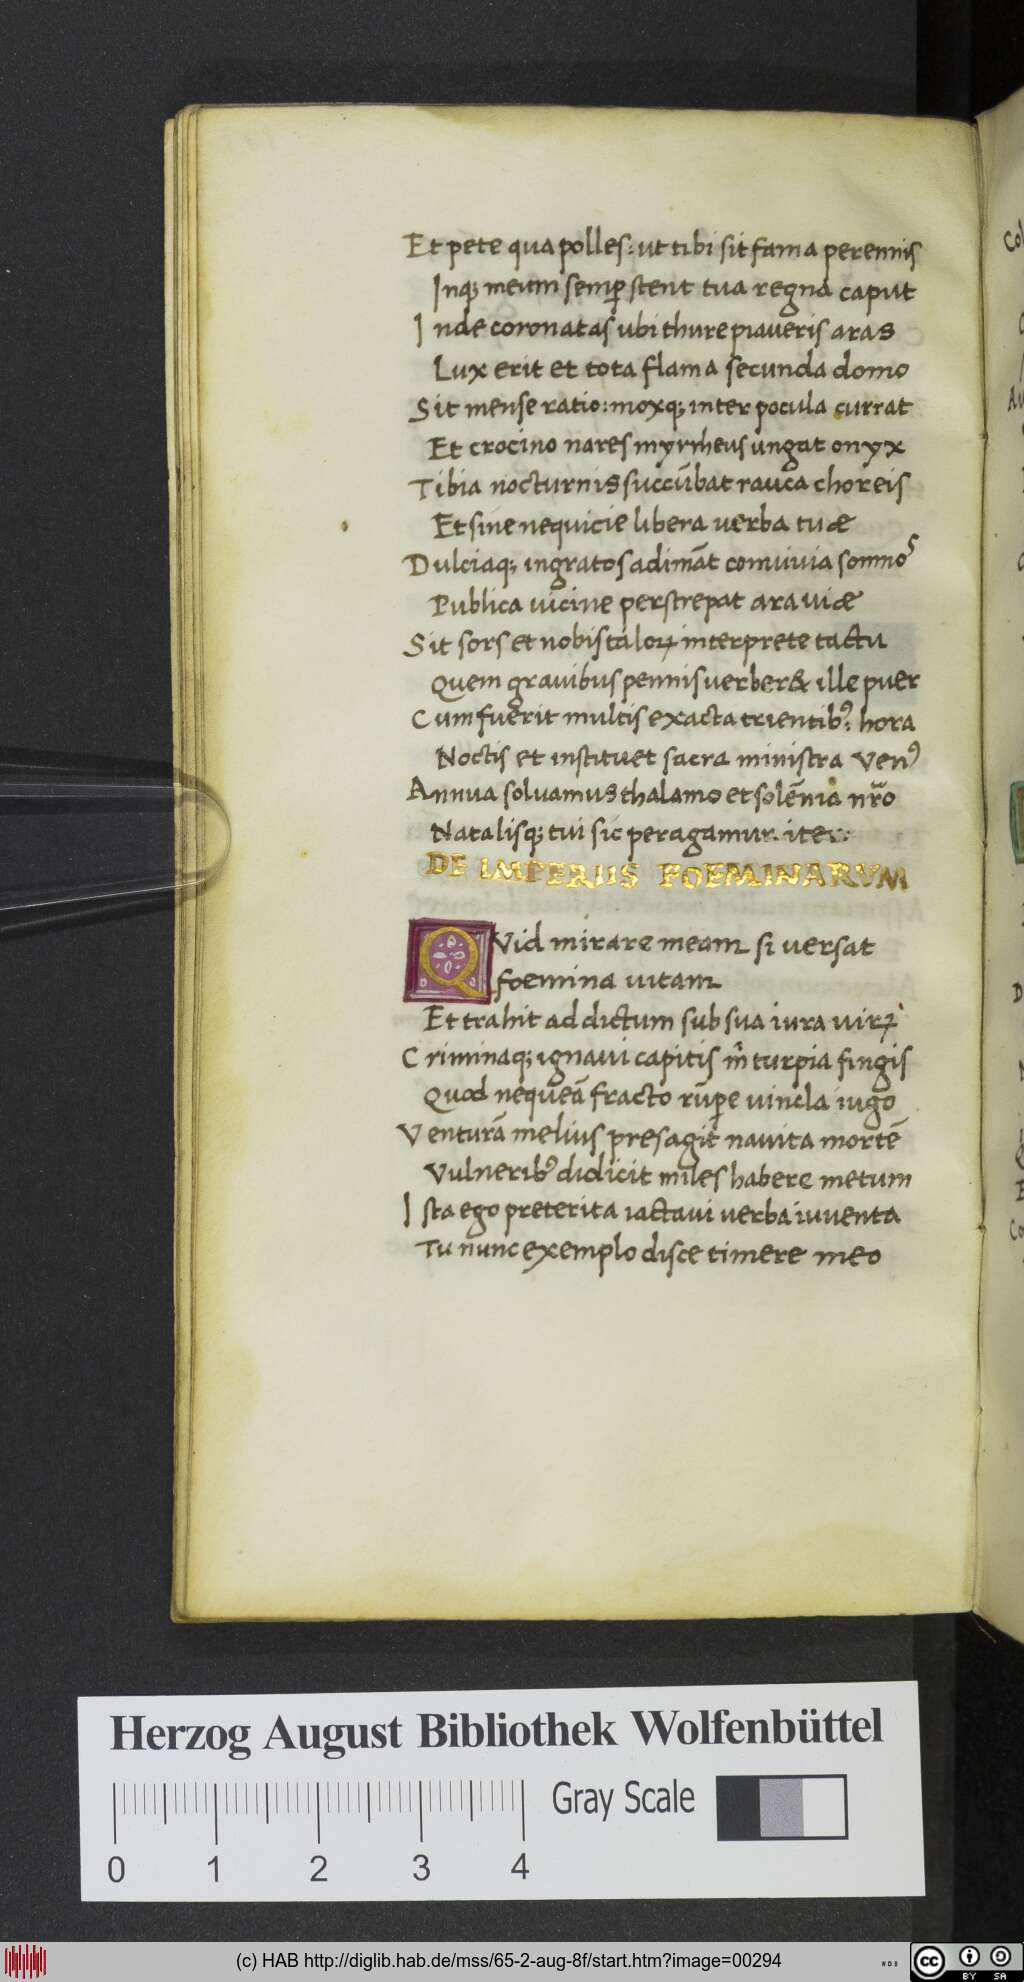 Et pete qua polles: ut tibi sit fama perennis
Inq; meum semꝑ stent tua regna caput
Inde coronatas ubi thure piaueris aras
Lux erit et tota flama secunda domo
Sit mense ratio: moxq; inter pocula currat
Et crocino nares myrrheus ungat onyx
Tibia nocturnis succūbat rauca choreis
Et sine nequicie libera uerba tuæ
Dulciaq; ingratos adimāt conuiuia somnos
Publica uicine perstrepat ara uiæ
Sit sors et nobis taloꝝ interprete tactu
Quem grauibus pennis uerber& ille puer
Cum fuerit multis exacta trientibꝰ: hora
Noctis et instituet sacra ministra Venꝰ
Annua soluamus thalamo et solēnia nr̄o
Natalisq; tui sic peragamur. iter:
DE IMPERIIS FOEMINARVM
QVid mirare meam si uersat
foemina uitam
Et trahit addictum sub sua iura uirꝝ
Criminaq; ignaui capitis m̄ turpia fingis
Quod nequeā fracto rūpe uincla iugo
Venturā melius presagit nauita mortē
Vulneribꝰ didicit miles habere metum
Ista ego preterita iactaui uerba iuuenta
Tu nunc exemplo disce timere meo
Herzog August Bibliothek Wolfenbüttel
Gray Scale
0 1 2 3 4
(c) HAB http://diglib.hab.de/mss/65-2-aug-8f/start.htm?image=00294
cc BY SA